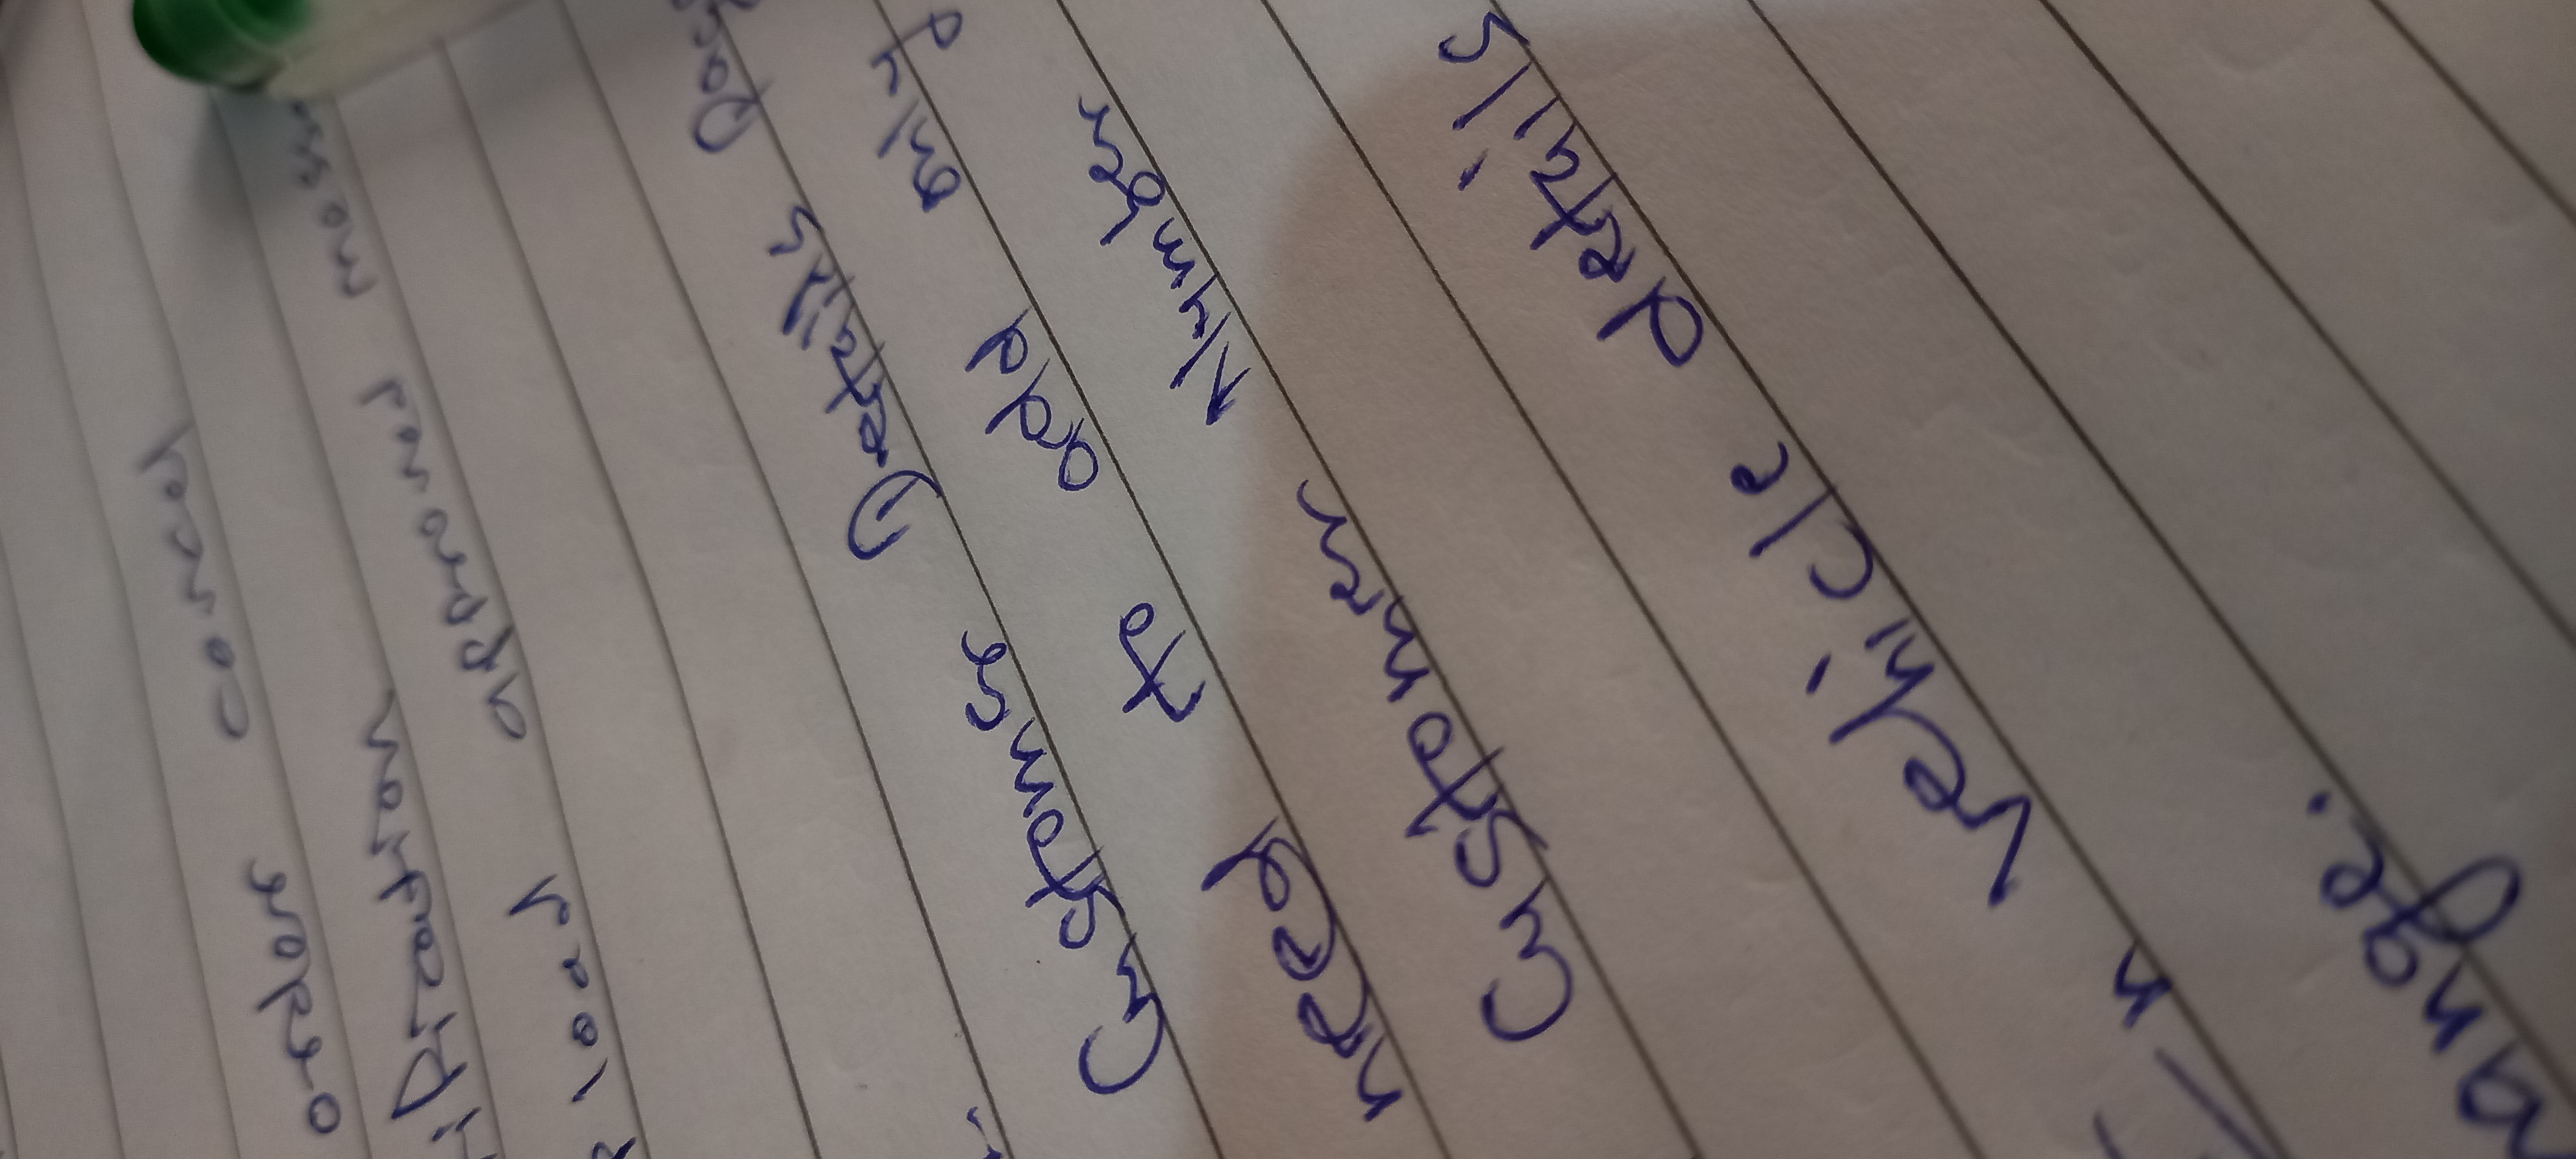 order cancel
ification
load approved messa
Customer Details Pag
need to add only
Customer Number
In vehicle details
ange.